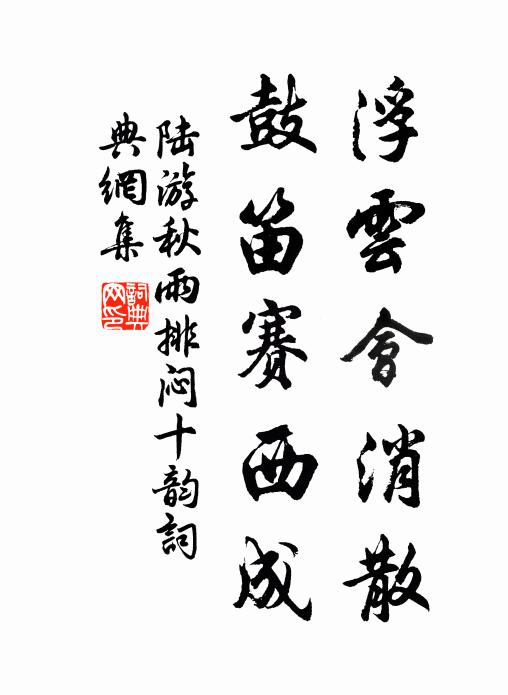 浮雲會消散
鼓笛賽西成
陆游秋雨排闷十韵詞
典網集
詞典网印